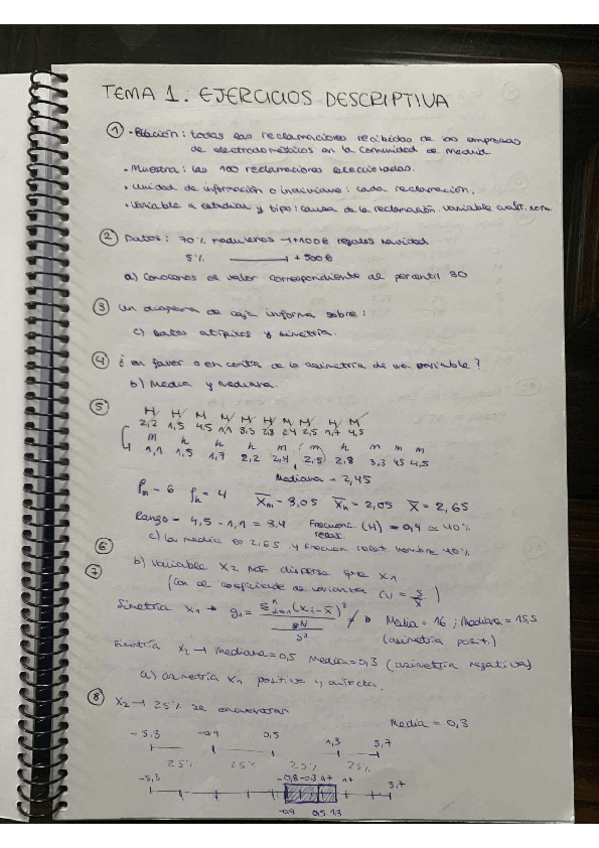 TEMA 1. EJERCICIOS DESCRIPTIVA
① - Población: todas las reclamaciones recibidas de las empresas
de electrodomésticos en la Comunidad de Madrid
• Muestra: las 100 reclamaciones seleccionadas.
• Unidad de información o individuo: cada reclamación.
• Variable a estudiar y tipo: causa de la reclamación. Variable cualit. nom.
② Datos: 70% madrileños → +100€ regalos navidad
5% → +500€
a) Conocemos el valor correspondiente al percentil 30
③ Un diagrama de caja informa sobre:
c) Datos atípicos y simetría.
④ ¿a favor o en contra de la asimetría de una variable?
b) Media y mediana.
⑤ H H M M H H M M H M
2,2 1,5 4,5 1,1 3,3 2,8 2,4 2,5 1,7 4,5
m h h h m m h m m m
1,1 1,5 1,7 2,2 2,4 2,5 2,8 3,3 4,5 4,5
Mediana = 2,45
fm = 6 fh = 4 X̄m = 3,05 X̄h = 2,05 X̄ = 2,65
Rango = 4,5 - 1,1 = 3,4 Frecuenc. (H) = 0,4 ≃ 40%
relat.
⑥ c) La media es 2,65 y frecuen relat. hombre 40%
⑦ b) Variable X2 más dispersa que X1
(con el coeficiente de variación CV = S/X̄)
Simetría X1 → Media = 16 ; Mediana = 15,5
(asimetría posit.)
Simetría X2 → Mediana = 0,5 Media = 0,3 (asimetría negativa)
a) asimetría X1 positiva y
⑧ X2 → 25% se encuentran
Media = 0,3
-5,3 -0,9 0,5 1,3 5,7
25% 25% 25% 25%
-5,3 5,7
-0,9 0,5 1,3